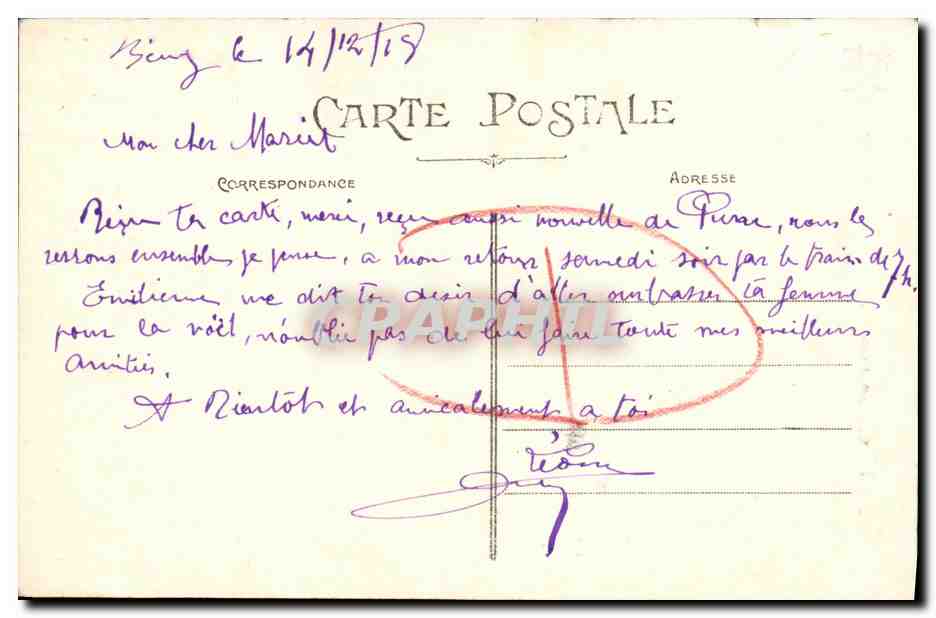 le 14/12/18
CARTE POSTALE
Mon cher
CORRESPONDANCE
ADRESSE
Reçu ta carte, merci, reçu aussi nouvelle de nous les
ressons ensembles je pense, a mon retour samedi soir par le train de 7h.
me dit ton desir d'aller embrasser ta femme
pour la noël, n'oublie pas de leur faire toute mes meilleurs
Amitiés.
A Bientôt et amicalement a toi
Léon
CPAPHIL